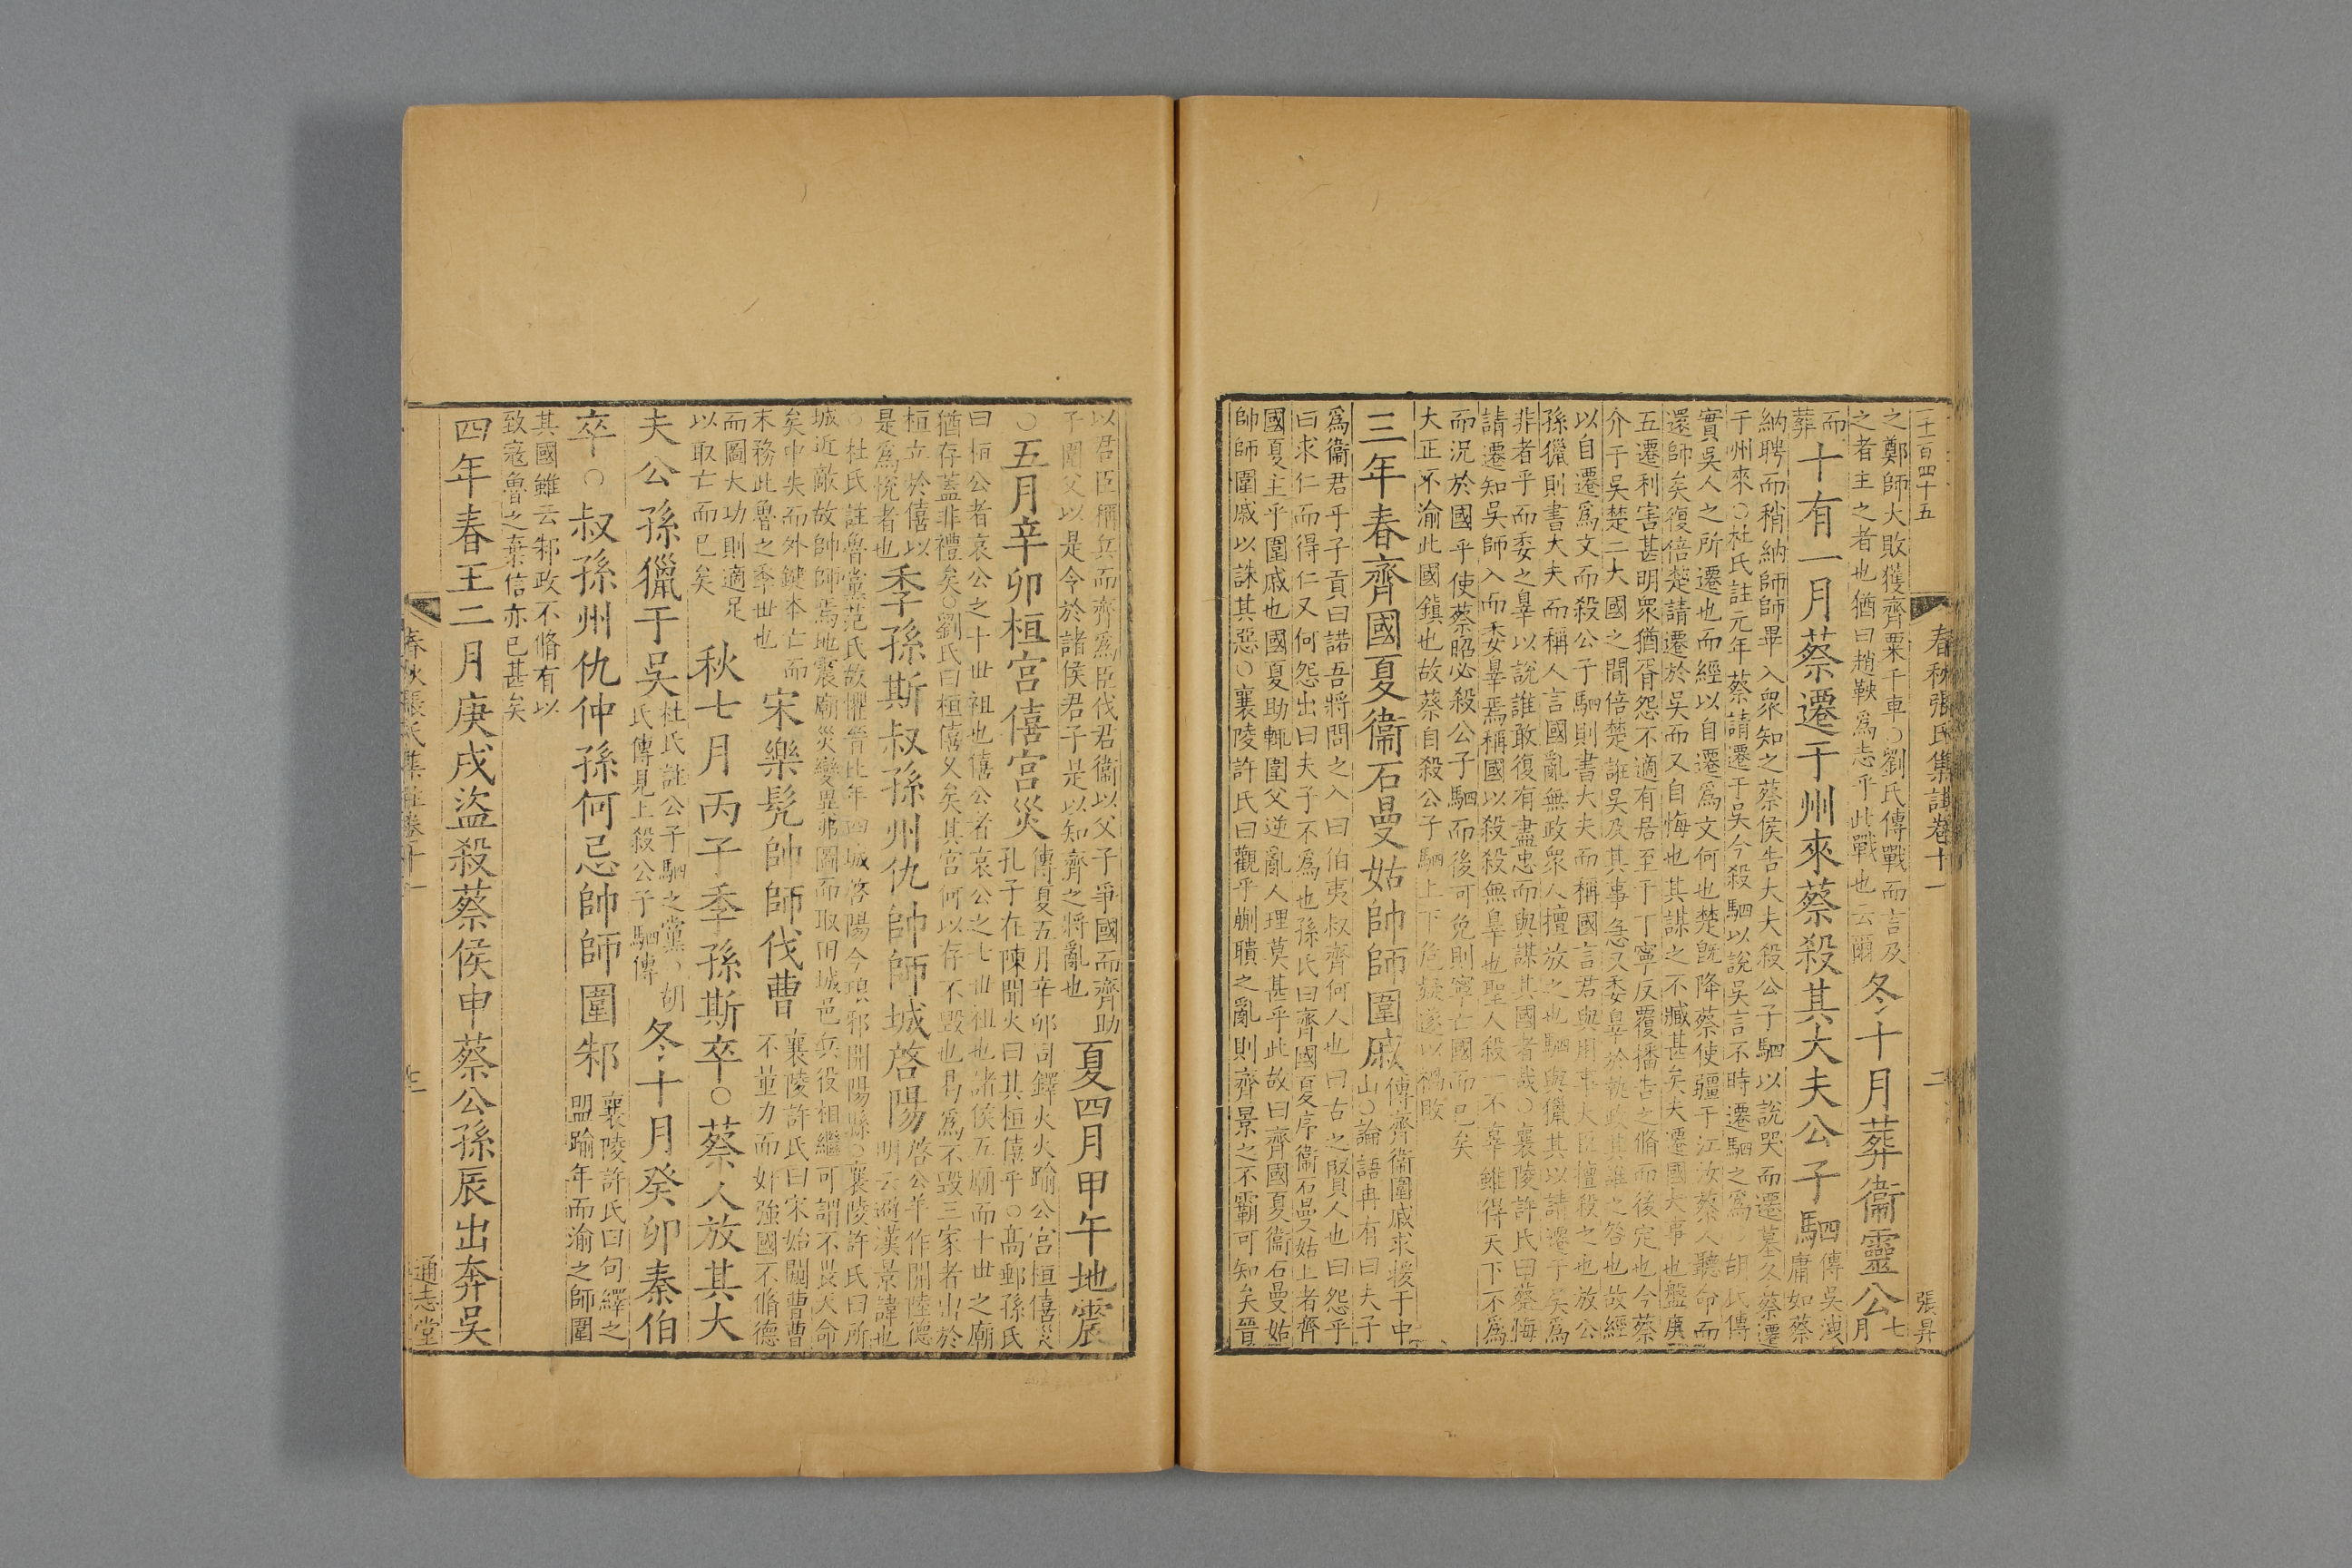 二千百四十五
春秋張氏集註卷十一
二
張昇
之鄭師大敗獲齊粟千車○劉氏傳戰而言及
之者主之者也猶曰趙鞅爲志乎此戰也云爾
冬十月葬衞靈公
七月
而葬
十有一月蔡遷于州來蔡殺其大夫公子駟
傳吳洩庸如蔡
納聘而稍納師師畢入衆知之蔡侯告大夫殺公子駟以說哭而遷墓冬蔡遷
于州來○杜氏註元年蔡請遷于吳今殺駟以說吳言不時遷駟之爲○胡氏傳
實吳人之所遷也而經以自遷爲文何也楚旣降蔡使疆于江汝蔡人聽命而
還師矣復倍楚請遷於吳而又自悔也其謀之不臧甚矣夫遷國大事也盤庚
五遷利害甚明衆猶胥怨不適有居至于丁寧反覆播告之脩而後定也今蔡
介于吳楚二大國之閒倍楚誑吳及其事急又委辠於執政其誰之咎也故經
以自遷爲文而殺公子駟則書大夫而稱國言君與用事大臣擅殺之也放公
孫獵則書大夫而稱人言國亂無政衆人擅放之也駟與獵其以請遷于吳爲
非者乎而委之辠以說誰敢復有盡忠而與謀其國者哉○襄陵許氏曰蔡悔
請遷知吳師入而委辠焉稱國以殺殺無辠也聖人殺一不辠雖得天下不爲
而況於國乎使蔡昭必殺公子駟而後可免則寧亡國而已矣
大正不渝此國鎭也故蔡自殺公子駟上下危疑遂以禍敗
三年春齊國夏衞石曼姑帥師圍戚
傳齊衞圍戚求援于中
山○論語冉有曰夫子
爲衞君乎子貢曰諾吾將問之入曰伯夷叔齊何人也曰古之賢人也曰怨乎
曰求仁而得仁又何怨出曰夫子不爲也孫氏曰齊國夏序衞石曼姑上者齊
國夏主乎圍戚也國夏助輒圍父逆亂人理莫甚乎此故曰齊國夏衞石曼姑
帥師圍戚以誅其惡○襄陵許氏曰觀乎蒯聵之亂則齊景之不霸可知矣晉
以君臣稱兵而齊爲臣伐君衞以父子爭國而齊助
子圍父以是令於諸侯君子是以知齊之將亂也
夏四月甲午地震
○五月辛卯桓宮僖宮災
傳夏五月辛卯司鐸火火踰公宮桓僖災
孔子在陳聞火曰其桓僖乎○高郵孫氏
曰桓公者哀公之十世祖也僖公者哀公之七世祖也諸侯五廟而十世之廟
猶存蓋非禮矣○劉氏曰桓僖久矣其宮何以存不毀也曷爲不毀三家者出於
桓立於僖以
是爲悅者也
季孫斯叔孫州仇帥師城啓陽
啓公羊作開陸德
明云避漢景諱也
○杜氏註魯黨范氏故懼晉比年四城啓陽今琅邪開陽縣○襄陵許氏曰所
城近敵故帥師焉地震廟災變異弗圖而取田城邑兵役相繼可謂不畏天命
矣中失而外鍵本亡而
末務此魯之季世也
宋樂髡帥師伐曹
襄陵許氏曰宋始闚曹曹
不量力而奸強國不脩德
而圖大功則適足
以取亡而已矣
秋七月丙子季孫斯卒○蔡人放其大
夫公孫獵于吳
杜氏註公子駟之黨○胡
氏傳見上殺公子駟傳
冬十月癸卯秦伯
卒○叔孫州仇仲孫何忌帥師圍邾
襄陵許氏曰句繹之
盟踰年而渝之師圍
其國雖云邾政不脩有以
致寇魯之棄信亦已甚矣
四年春王二月庚戌盜殺蔡侯申蔡公孫辰出奔吳
春秋張氏集註卷十一
通志堂